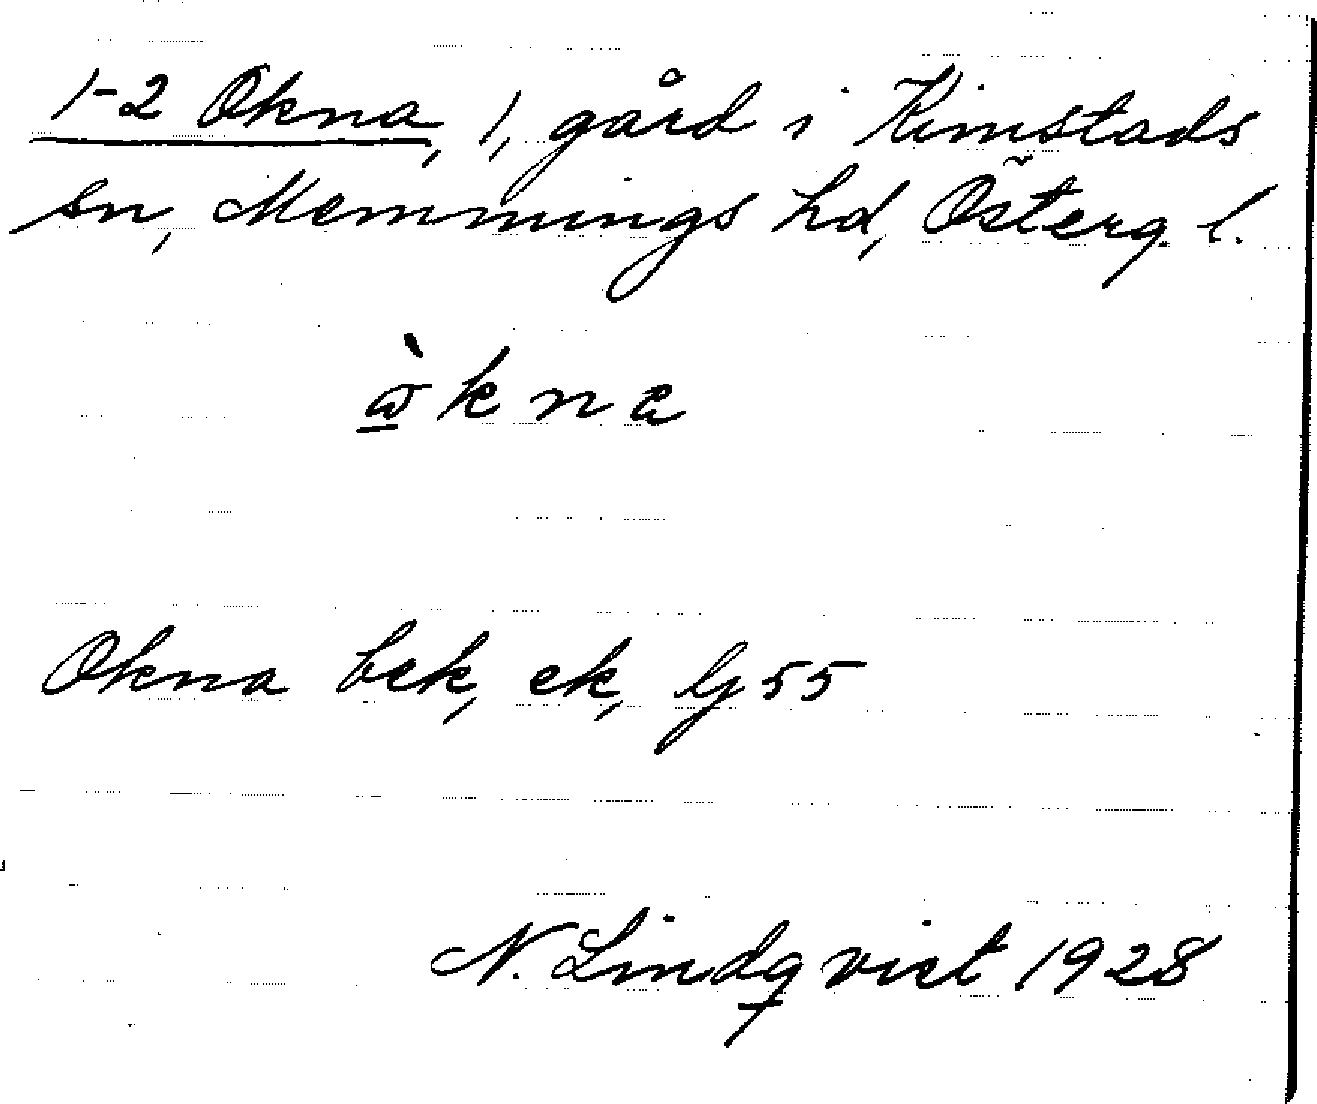 1-2 Okna, 1, gård i Kimstads
sn, Memmings hd, Österg. l.
kna
Okna bek, ek, Gj 55
N. Lindqvist 1928